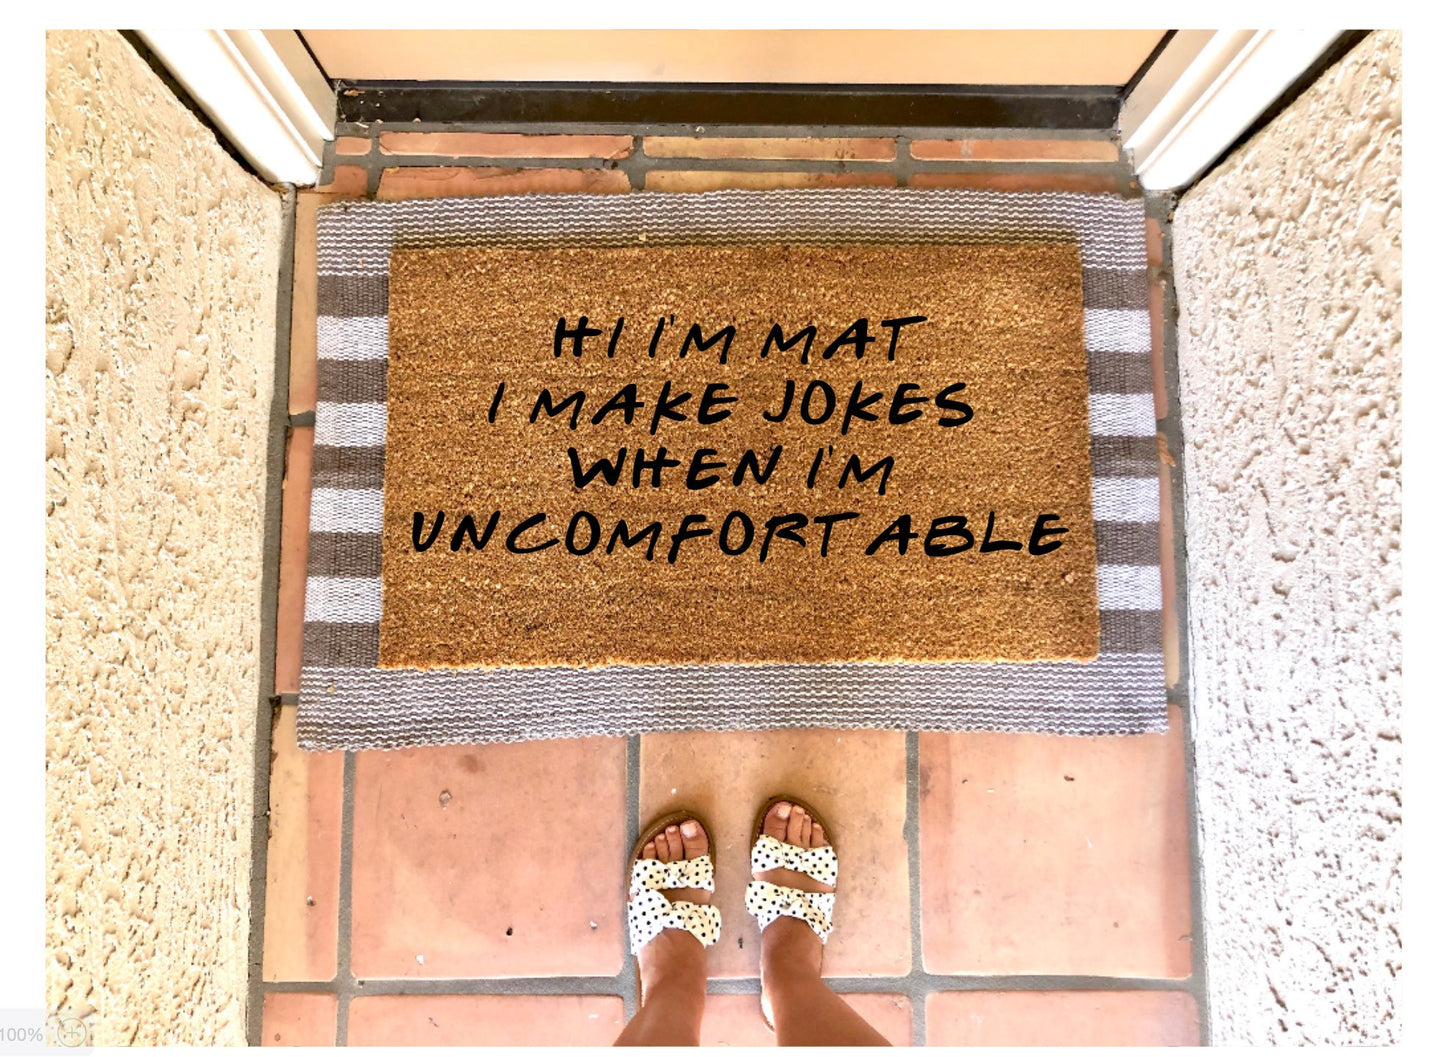 HI I'M MAT
I MAKE JOKES
WHEN I'M
UNCOMFORT ABLE
100%